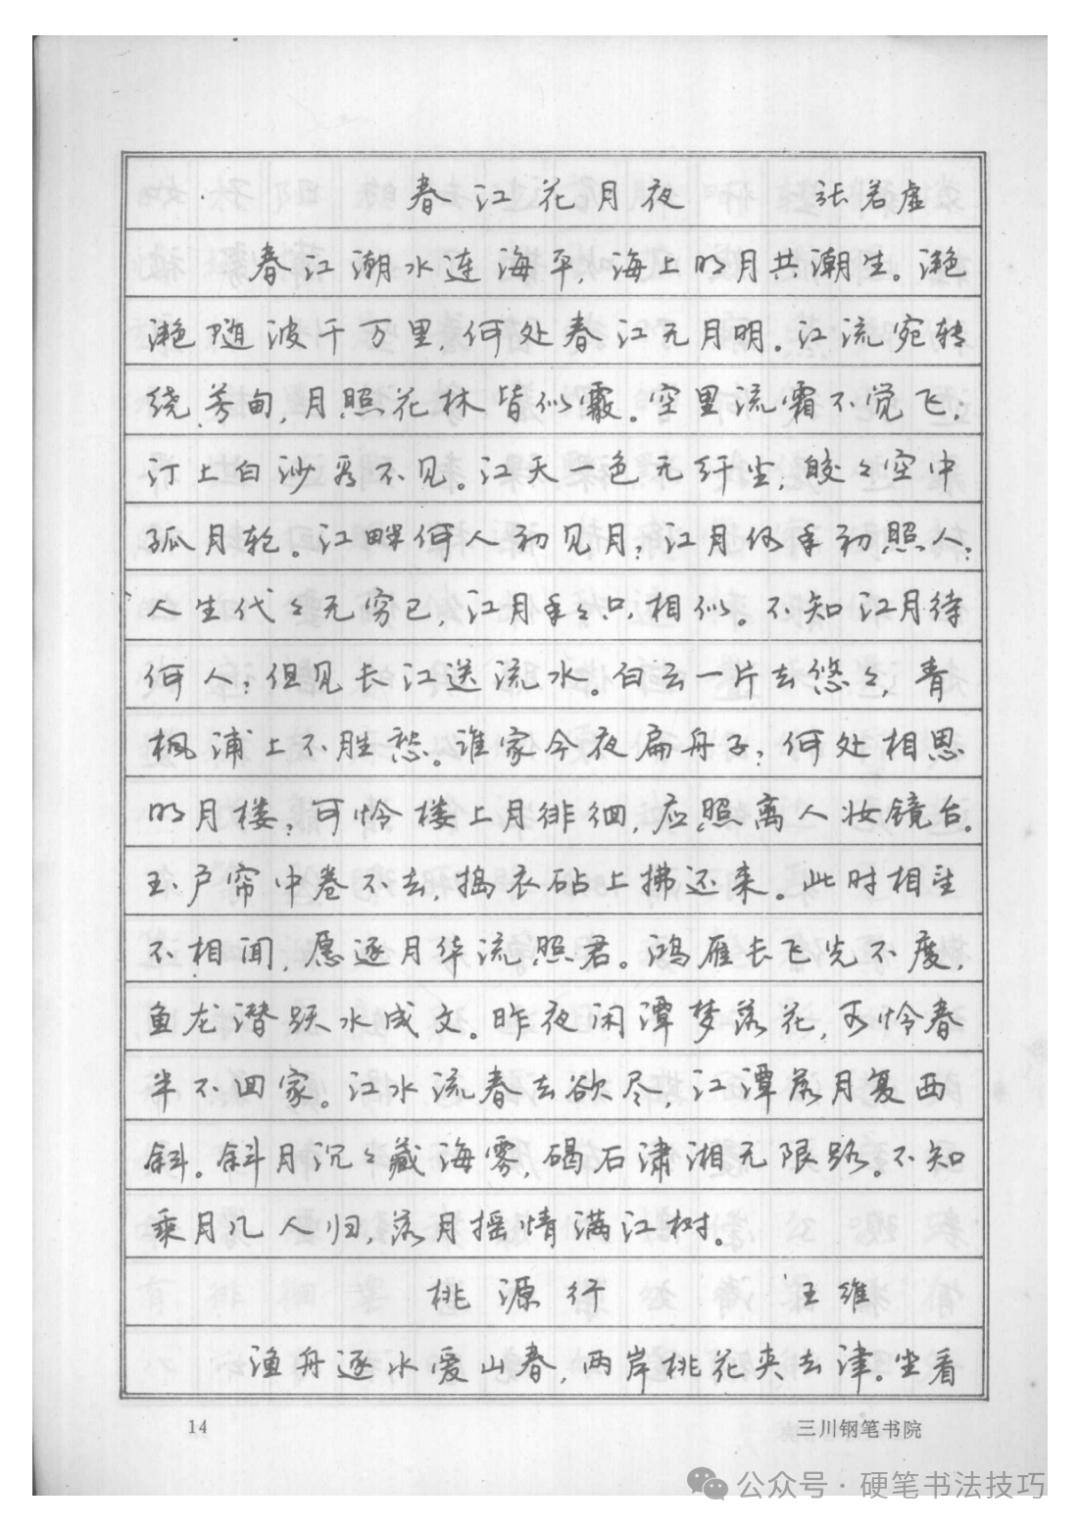 春江花月夜 张若虚
春江潮水连海平,海上明月共潮生。滟
滟随波千万里,何处春江无月明。江流宛转
绕芳甸,月照花林皆似霰。空里流霜不觉飞,
汀上白沙看不见。江天一色无纤尘,皎々空中
孤月轮。江畔何人初见月?江月何年初照人?
人生代々无穷已,江月年々只相似。不知江月待
何人?但见长江送流水。白云一片去悠々,青
枫浦上不胜愁。谁家今夜扁舟子?何处相思
明月楼?可怜楼上月徘徊,应照离人妆镜台。
玉户帘中卷不去,捣衣砧上拂还来。此时相望
不相闻,愿逐月华流照君。鸿雁长飞光不度,
鱼龙潜跃水成文。昨夜闲潭梦落花,可怜春
半不回家。江水流春去欲尽,江潭落月复西
斜。斜月沉々藏海雾,碣石潇湘无限路。不知
乘月几人归,落月摇情满江树。
桃源行 王维
渔舟逐水爱山春,两岸桃花夹去津。坐看
14 三川钢笔书院
公众号·硬笔书法技巧